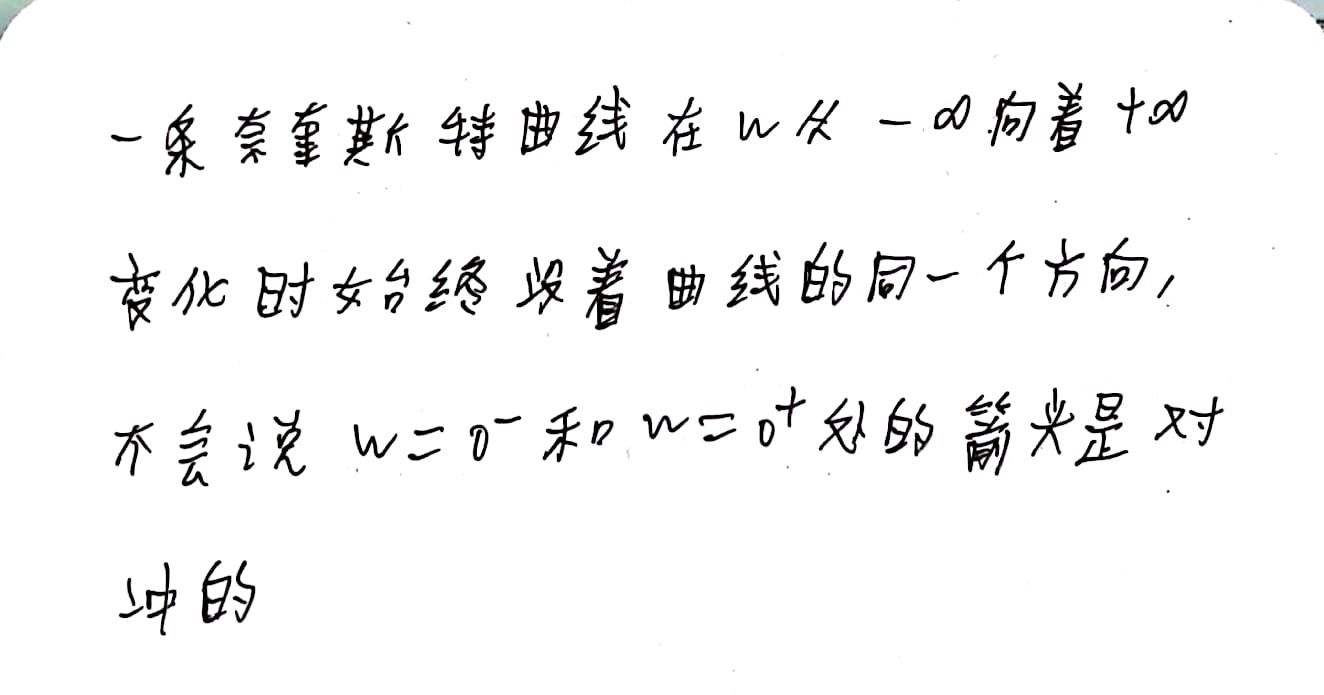 一条奈奎斯特曲线在w从-∞向着+∞
变化时始终沿着曲线的同一个方向,
不会说w=0⁻和w=0⁺处的箭头是对
冲的